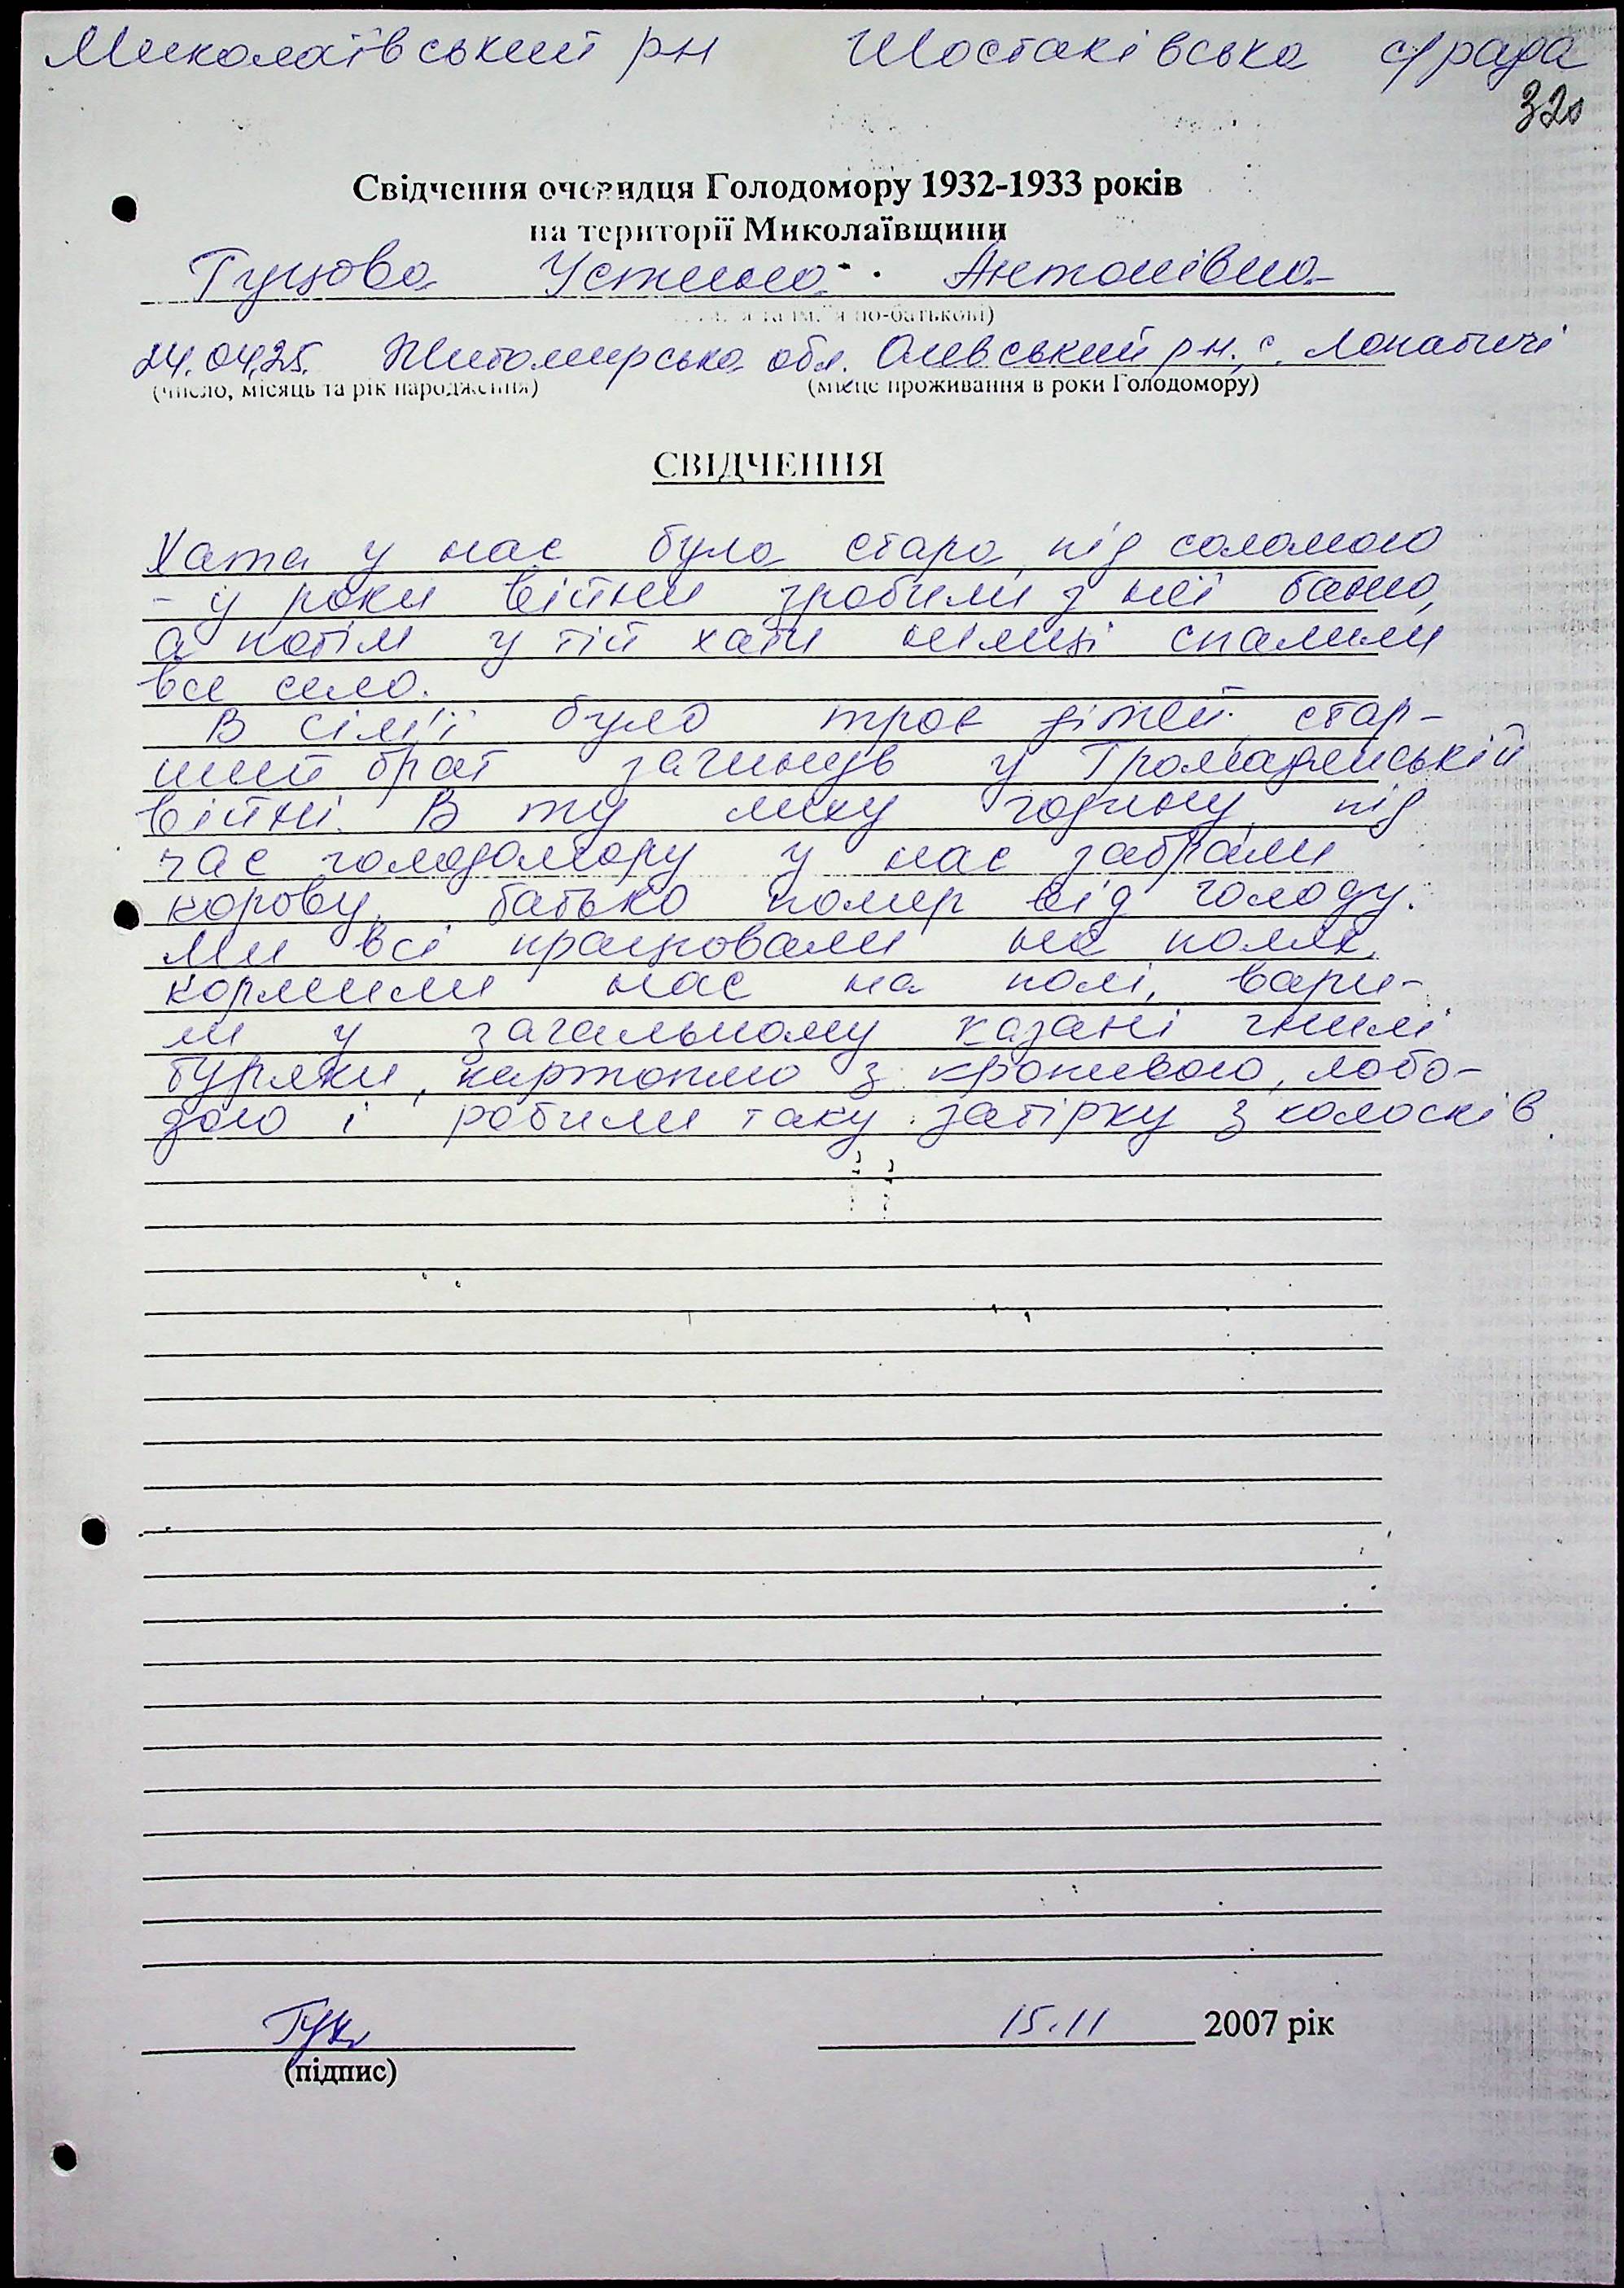 Миколаївський рн Шостаківська с/рада
320
Свідчення очевидця Голодомору 1932-1933 років
на території Миколаївщини
Гуцова Устинья Антонівна
(прізвище та ім'я по-батькові)
24.04.25. Житомирська обл. Олевський рн, с. Лопатичі
(число, місяць та рік народження) (місце проживання в роки Голодомору)
СВІДЧЕННЯ
Хата у нас була стара, під соломою
- у роки війни зробили з неї баню,
а потім у тій хати німці спалили
все село.
В сім'ї було троє дітей, стар-
ший брат загинув у Громадянській
війні. В ту лиху годину, під
час голодомору у нас забрали
корову, батько помер від голоду.
Ми всі працювали на полях,
кормили нас на полі, вари-
ли у загальному казані гнилі
буряки, картоплю з кропивою, лобо-
дою і робили таку затірку з колосків.
(підпис)
15.11 2007 рік